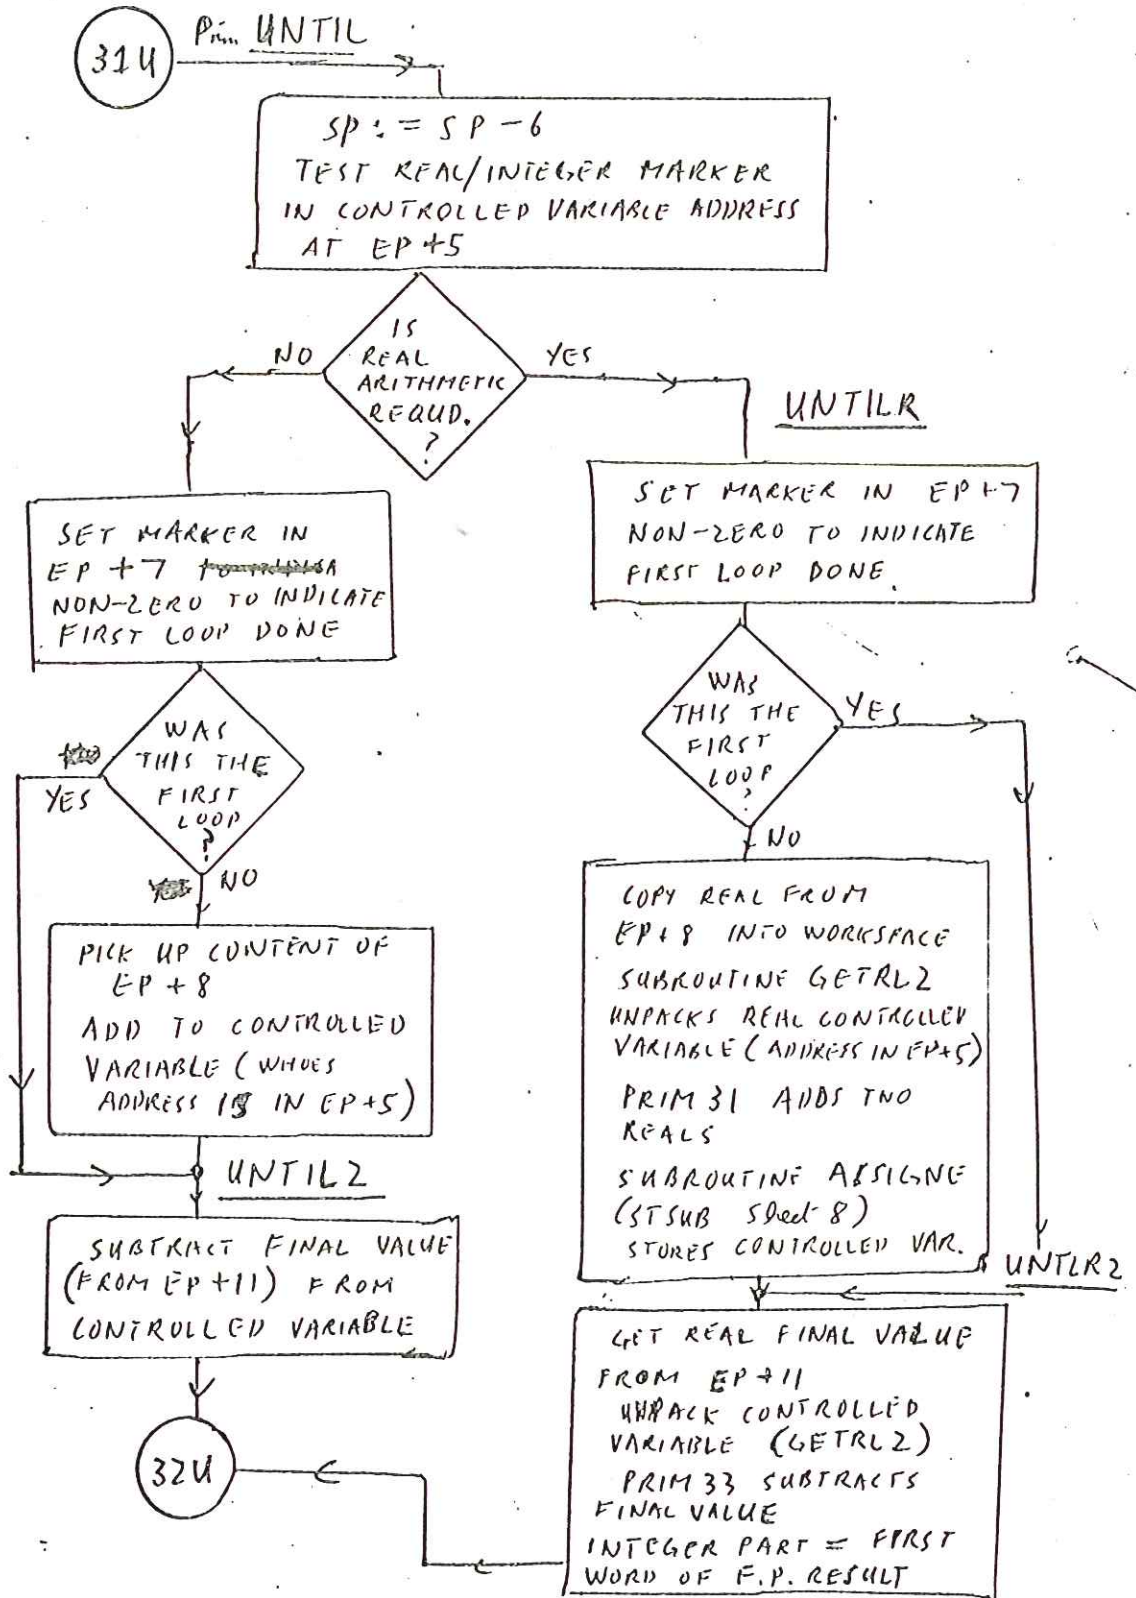 31U
Prim UNTIL
SP := SP - 6
TEST REAL/INTEGER MARKER
IN CONTROLLED VARIABLE ADDRESS
AT EP+5
IS
REAL
ARITHMETIC
REQUD.
?
NO
YES
UNTILR
SET MARKER IN
EP + 7
NON-ZERO TO INDICATE
FIRST LOOP DONE
SET MARKER IN EP+7
NON-ZERO TO INDICATE
FIRST LOOP DONE.
WAS
THIS THE
FIRST
LOOP
?
YES
NO
WAS
THIS THE
FIRST
LOOP
?
YES
NO
PICK UP CONTENT OF
EP + 8
ADD TO CONTROLLED
VARIABLE (WHOES
ADDRESS IS IN EP+5)
UNTIL2
SUBTRACT FINAL VALUE
(FROM EP+11) FROM
CONTROLLED VARIABLE
32U
COPY REAL FROM
EP+8 INTO WORKSPACE
SUBROUTINE GETRL2
UNPACKS REAL CONTROLLED
VARIABLE (ADDRESS IN EP+5)
PRIM 31 ADDS TWO
REALS
SUBROUTINE ASSIGNE
(STSUB Sheet 8)
STORES CONTROLLED VAR.
UNTLR2
GET REAL FINAL VALUE
FROM EP+11
UNPACK CONTROLLED
VARIABLE (GETRL2)
PRIM 33 SUBTRACTS
FINAL VALUE
INTEGER PART = FIRST
WORD OF F.P. RESULT